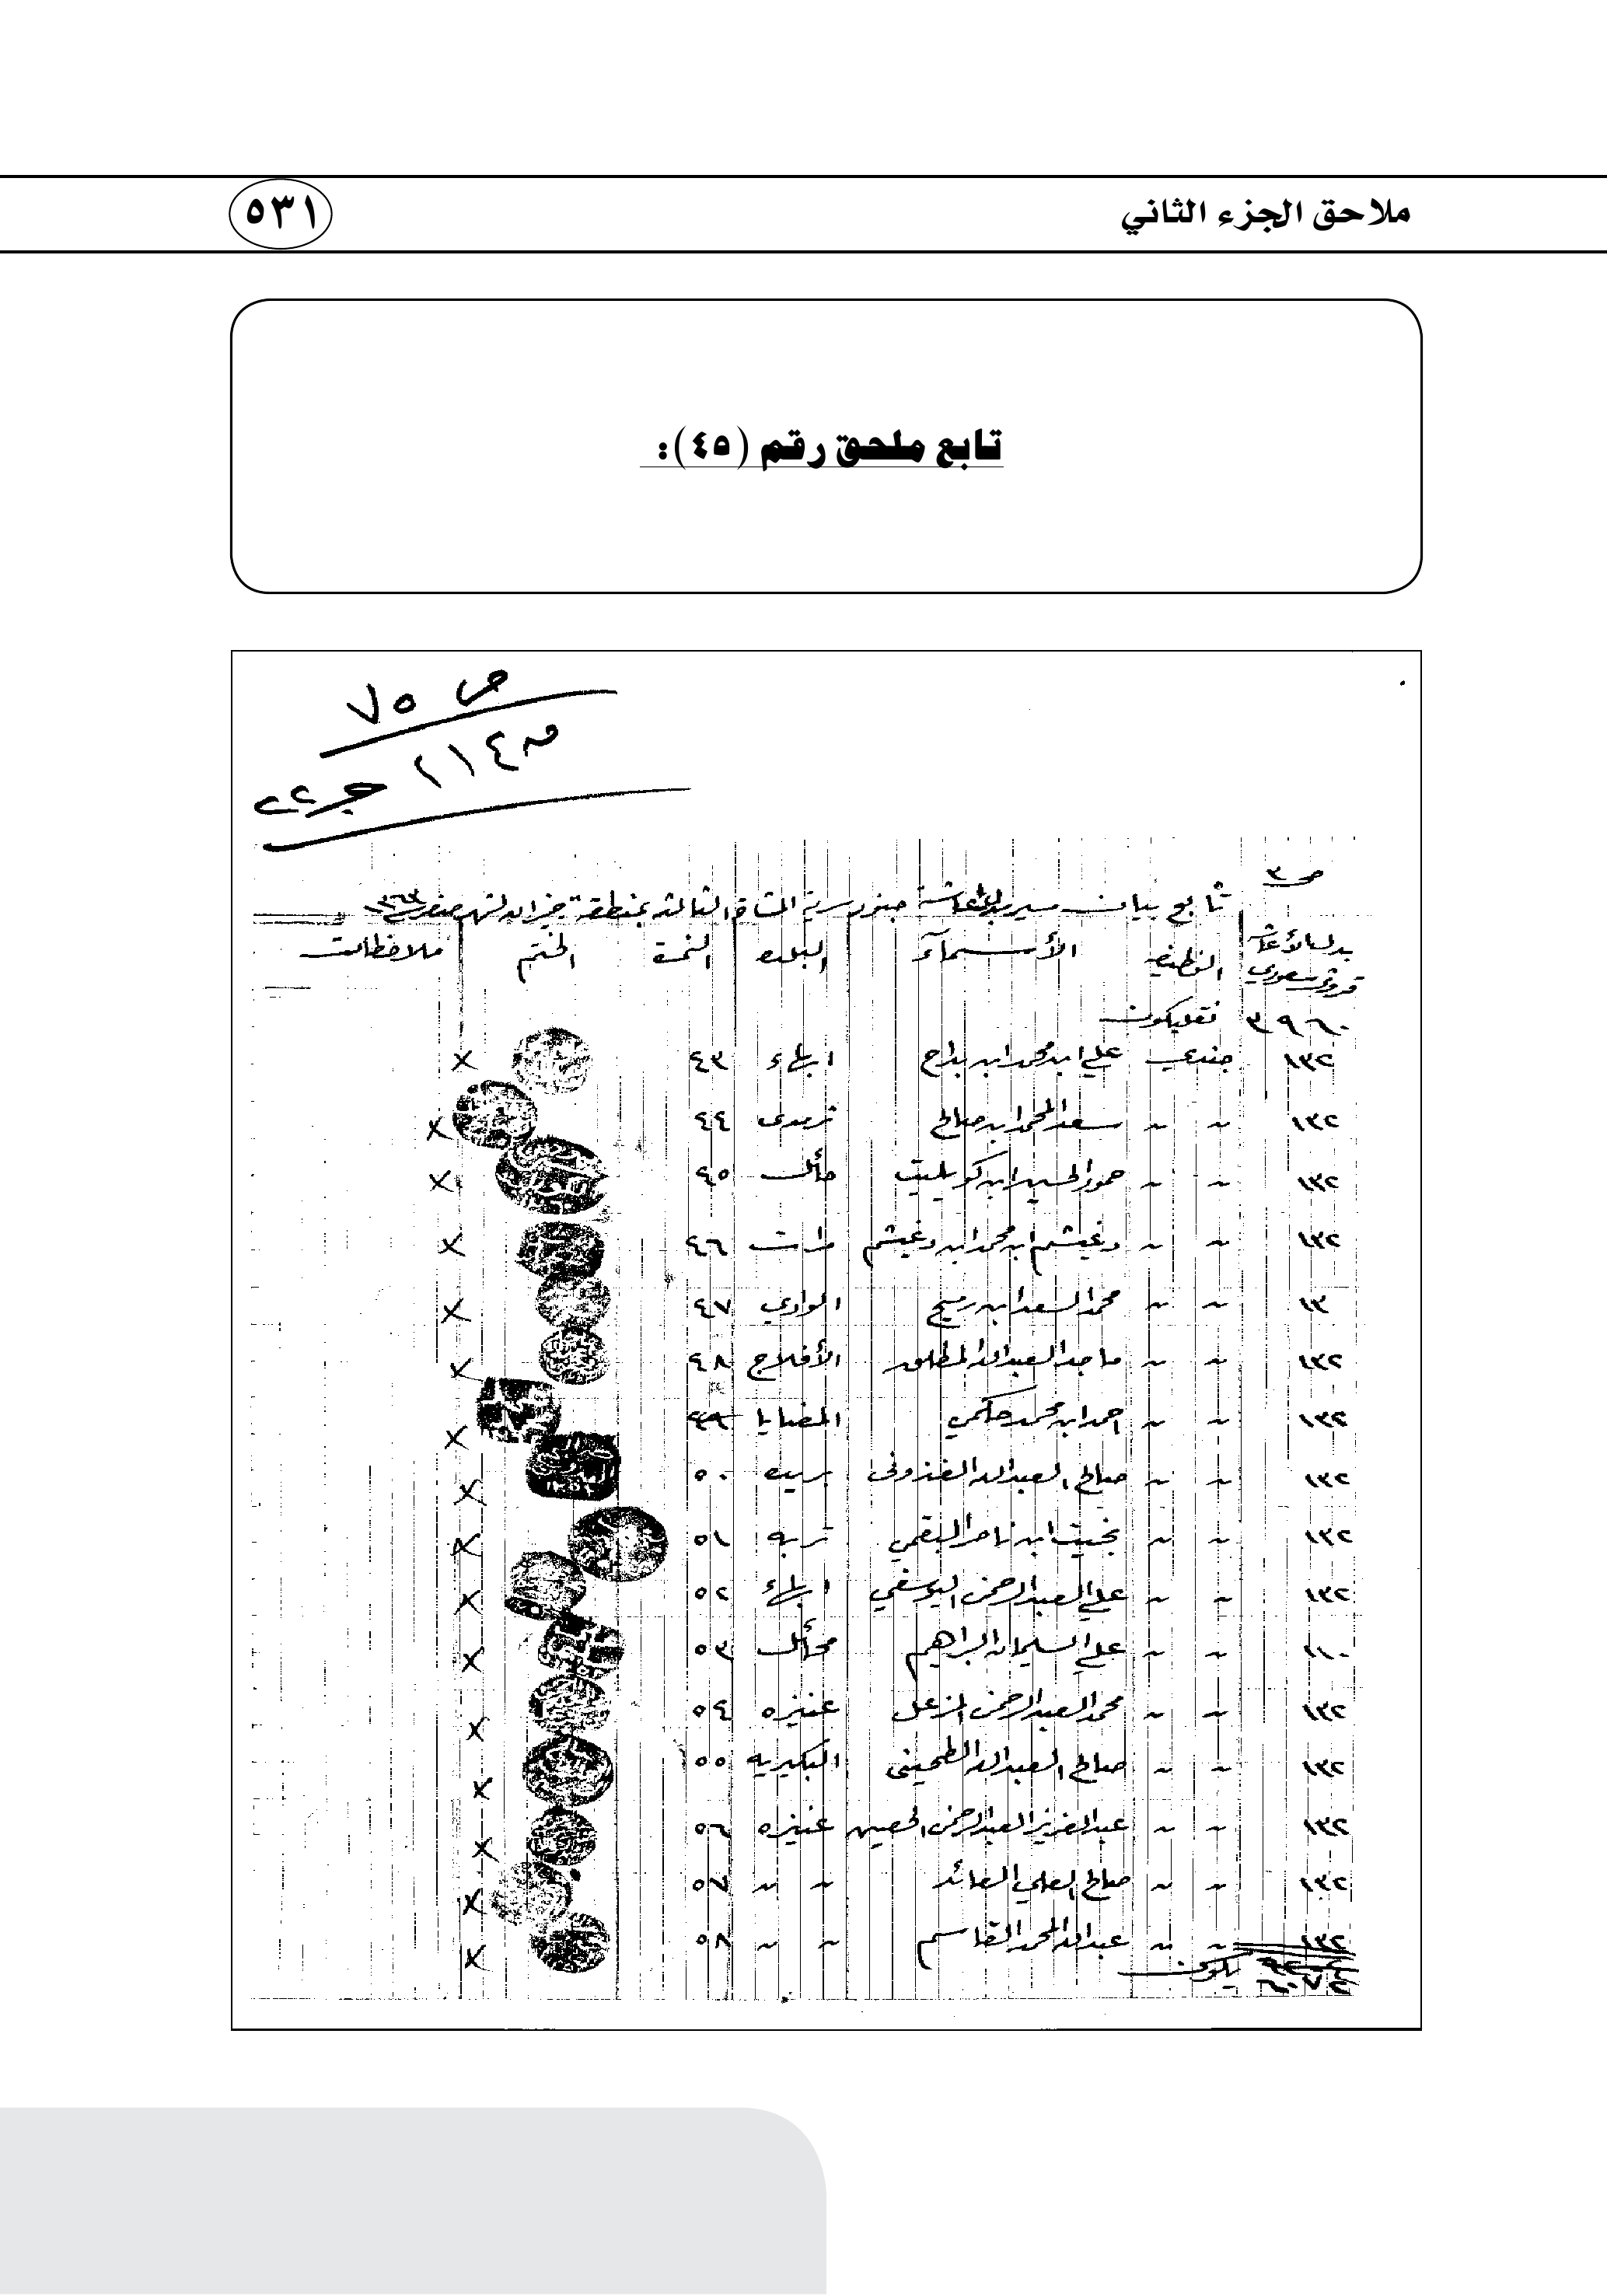 ملاحق الجزء الثاني ٥٣١
تابع ملحق رقم (٤٥):
ص ٧٥
جـ ٢٢
ص ٣
تابع بيان جنود سرية المشاة الثالثة بمنطقة جيزان لشهر صفر
بدل الاعاشة قروش سعودي الوظيفه الأسماء البلده النمرة الختم ملاحظات
٣٩٦٠ نقل يكون
١٣٢ جندي علي ابن محمد ابن ابهاء ٤٣ ×
١٣٢ سعد المحمد ابن صالح ٤٤ ×
١٣٢ حمود الحسين ابن حائل ٤٥ ×
١٣٢ دغيشم ابن محمد ابن دغيشم ٤٦ ×
١٣ محمد السعد ابن رميح الوادي ٤٧ ×
١٣٢ ماجد العبدالله المطلق الأفلاج ٤٨ ×
١٣٢ احمد ابن محمد حكمي المضايا ٤٩ ×
١٣٢ صالح العبدالله بريده ٥٠ ×
١٣٢ بخيت ابن ناصر البقمي تربه ٥١ ×
١٣٢ علي العبدالرحمن اليوسفي ابهاء ٥٢ ×
١١٠ علي السليمان البراهيم ٥٣ ×
١٣٢ محمد العبدالرحمن المزعل عنيزه ٥٤ ×
١٣٢ صالح العبدالله الطحيني البكيريه ٥٥ ×
١٣٢ عبدالعزيز العبدالرحمن الحصين عنيزه ٥٦ ×
١٣٢ صالح العلي العائد ٥٧ ×
١٣٢ عبدالله المحمد القاسم ٥٨ ×
يكون